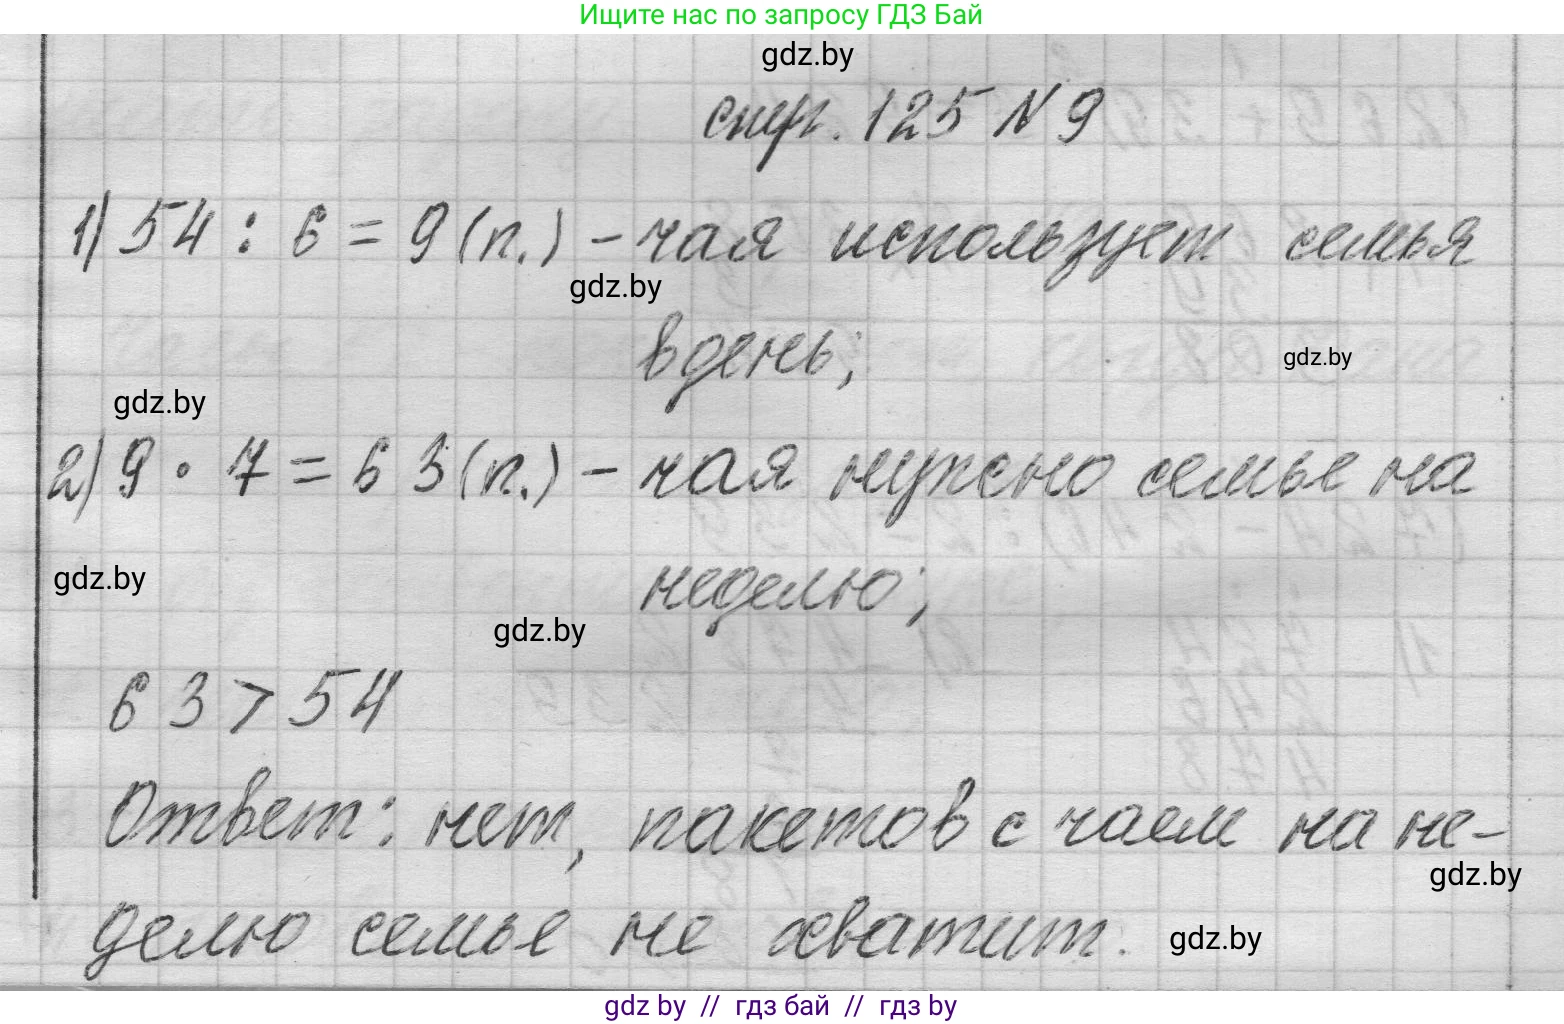 Ищите нас по запросу ГДЗ Бай
gdz.by
стр. 125 N 9
1) 54 : 6 = 9 (п.) - чая использует семья
gdz.by
в день;
gdz.by
gdz.by
2) 9 · 7 = 63 (п.) - чая нужно семье на
gdz.by
неделю;
gdz.by
63 > 54
Ответ: нет, пакетов с чаем на не-
gdz.by
делю семье не хватит.
gdz.by
gdz by // гдз бай // гдз by